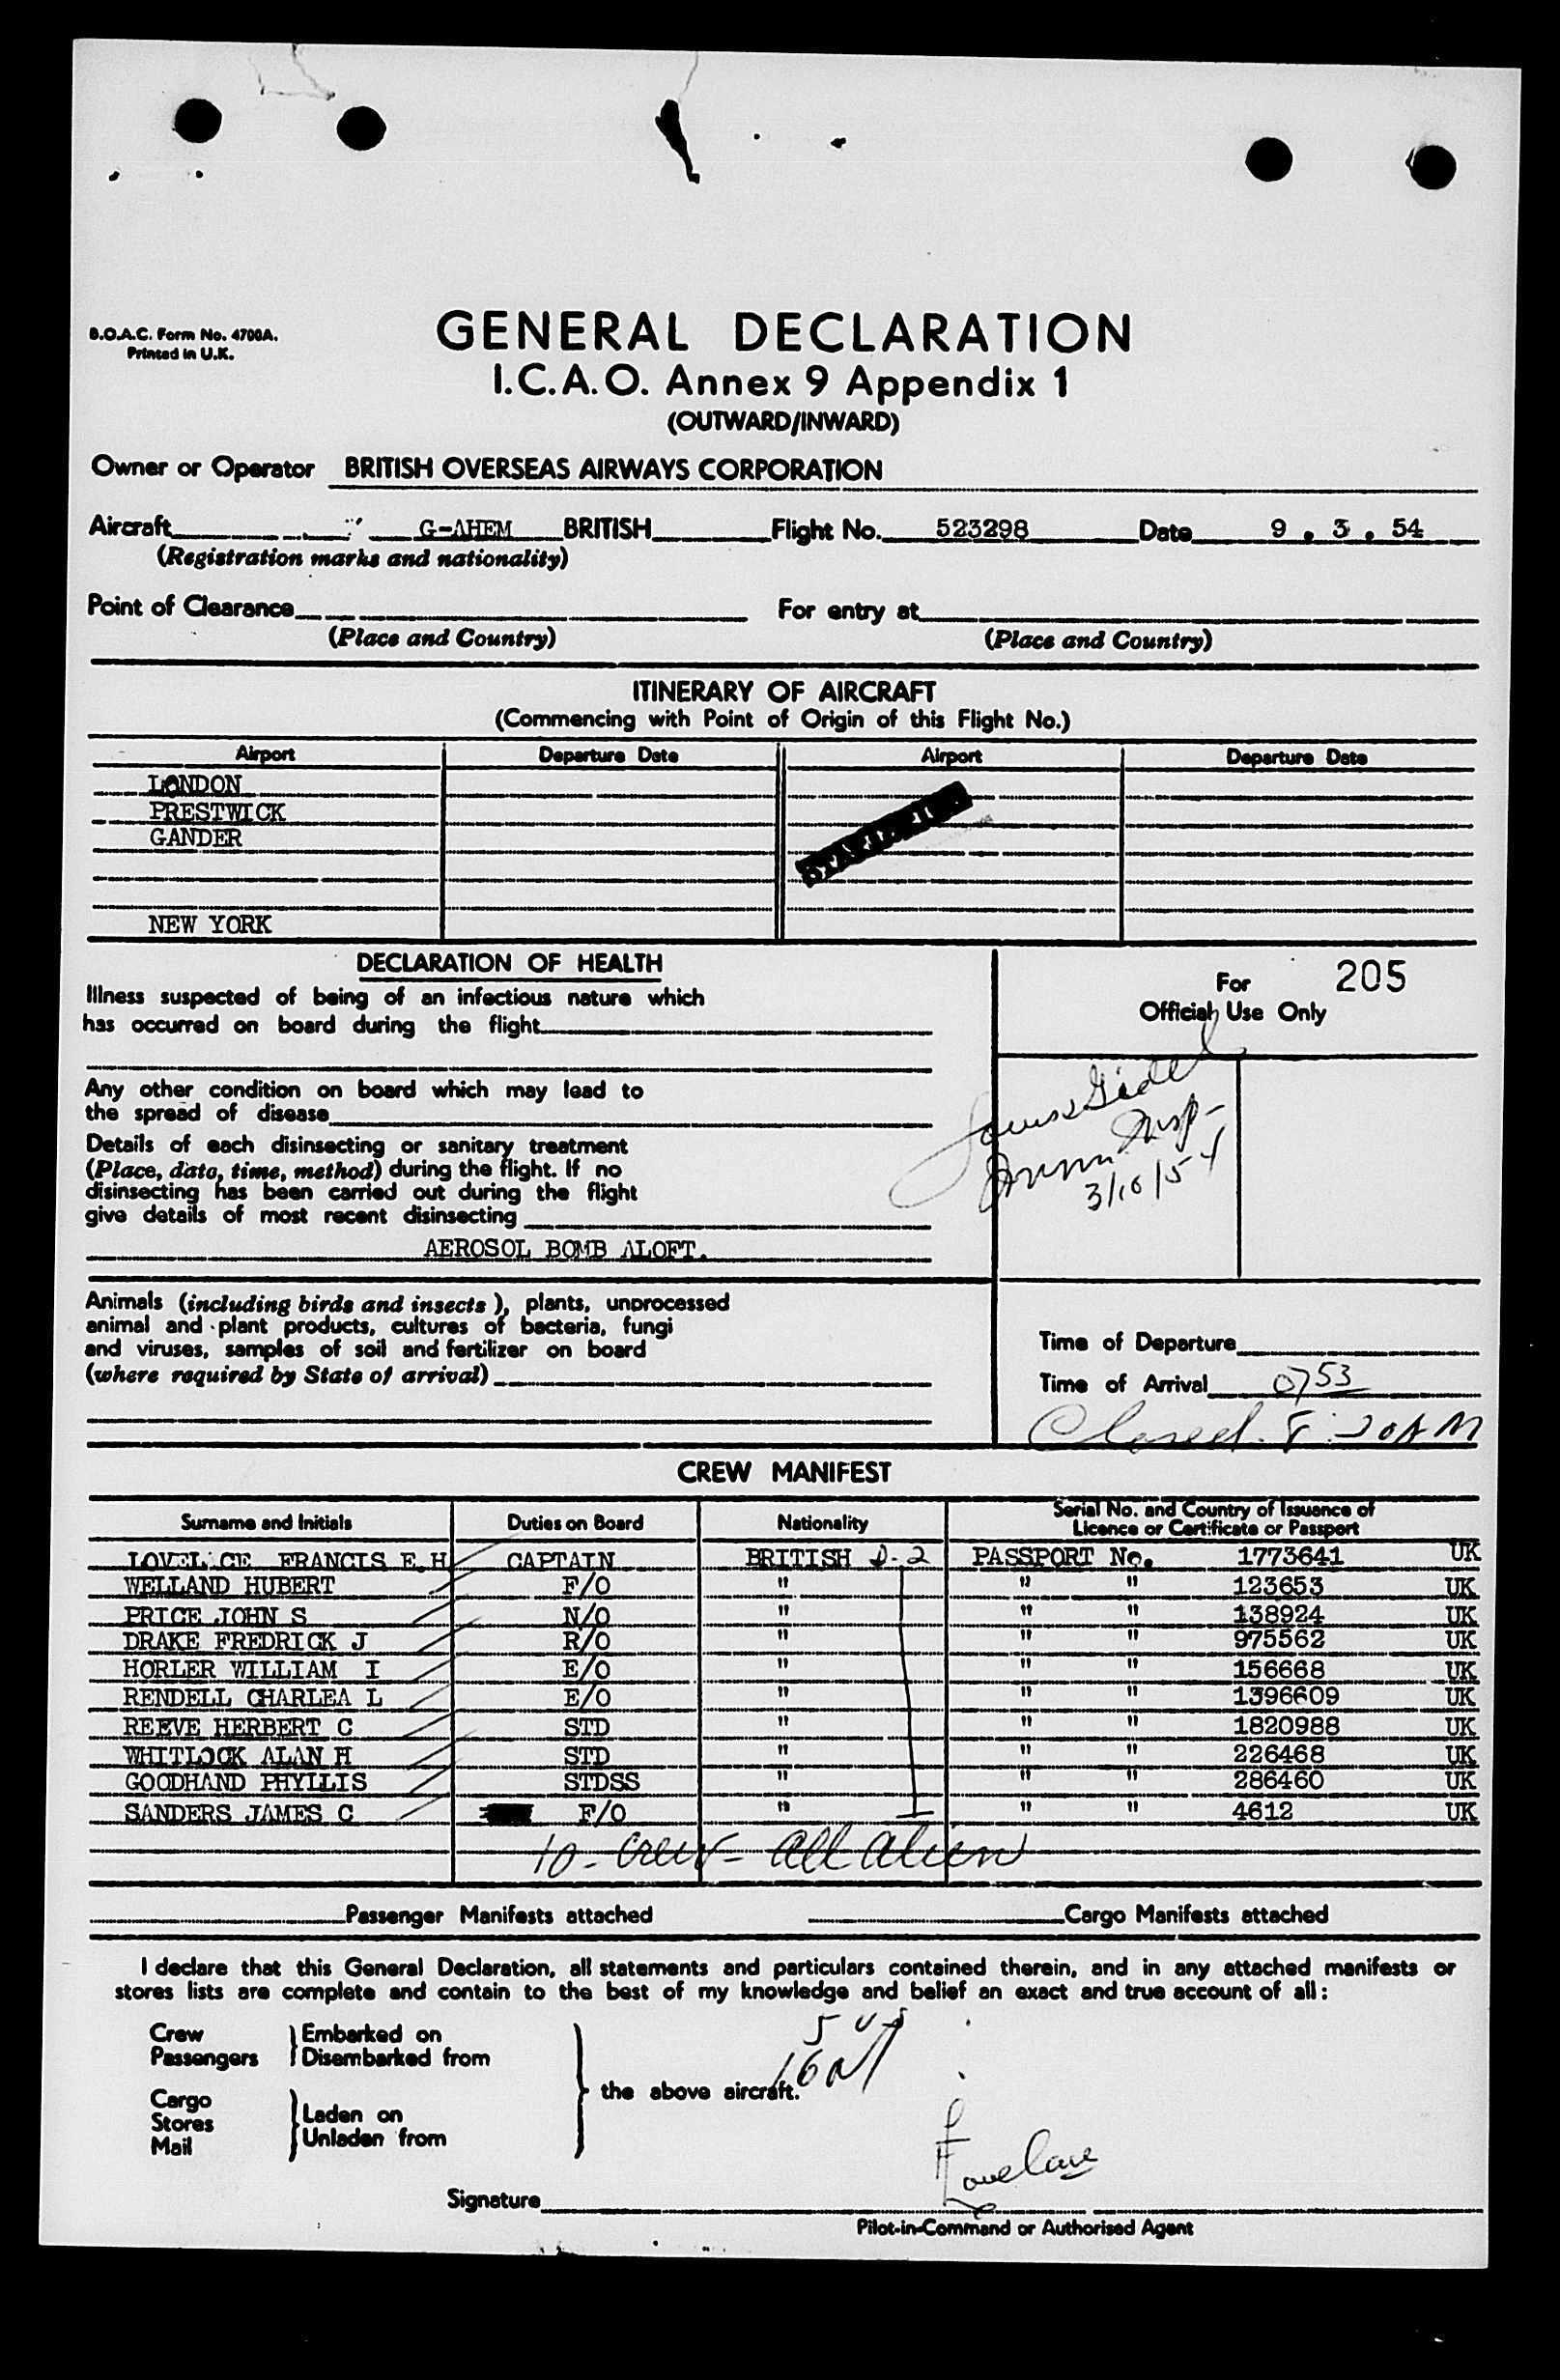 B.O.A.C. Form No. 4700A.
Printed in U.K.
GENERAL DECLARATION
I.C.A.O. Annex 9 Appendix 1
(OUTWARD/INWARD)
Owner or Operator BRITISH OVERSEAS AIRWAYS CORPORATION
Aircraft G-AHEM BRITISH Flight No. 523298 Date 9 . 3 . 54
(Registration marks and nationality)
Point of Clearance For entry at
(Place and Country) (Place and Country)
ITINERARY OF AIRCRAFT
(Commencing with Point of Origin of this Flight No.)
Airport Departure Date Airport Departure Date
LONDON
PRESTWICK
GANDER
NEW YORK
DECLARATION OF HEALTH
Illness suspected of being of an infectious nature which
has occurred on board during the flight
Any other condition on board which may lead to
the spread of disease
Details of each disinsecting or sanitary treatment
(Place, date, time, method) during the flight. If no
disinsecting has been carried out during the flight
give details of most recent disinsecting
AEROSOL BOMB ALOFT.
Animals (including birds and insects), plants, unprocessed
animal and plant products, cultures of bacteria, fungi
and viruses, samples of soil and fertilizer on board
(where required by State of arrival)
For 205
Official Use Only
Insp-
3/10/54
Time of Departure
Time of Arrival 0753
Closed. 8:20AM
CREW MANIFEST
Surname and Initials Duties on Board Nationality Serial No. and Country of Issuance of
Licence or Certificate or Passport
LOVEL CE FRANCIS E H CAPTAIN BRITISH D-2 PASSPORT No. 1773641 UK
WELLAND HUBERT F/O " " " 123653 UK
PRICE JOHN S N/O " " " 138924 UK
DRAKE FREDRICK J R/O " " " 975562 UK
HORLER WILLIAM I E/O " " " 156668 UK
RENDELL CHARLEA L E/O " " " 1396609 UK
REEVE HERBERT C STD " " " 1820988 UK
WHITLOCK ALAN H STD " " " 226468 UK
GOODHAND PHYLLIS STDSS " " " 286460 UK
SANDERS JAMES C F/O " " " 4612 UK
10 - Crew - all alien
Passenger Manifests attached Cargo Manifests attached
I declare that this General Declaration, all statements and particulars contained therein, and in any attached manifests or
stores lists are complete and contain to the best of my knowledge and belief an exact and true account of all:
Crew Embarked on
Passengers Disembarked from
the above aircraft.
Cargo
Stores Laden on
Mail Unladen from
Signature F Lovelace
Pilot-in-Command or Authorised Agent